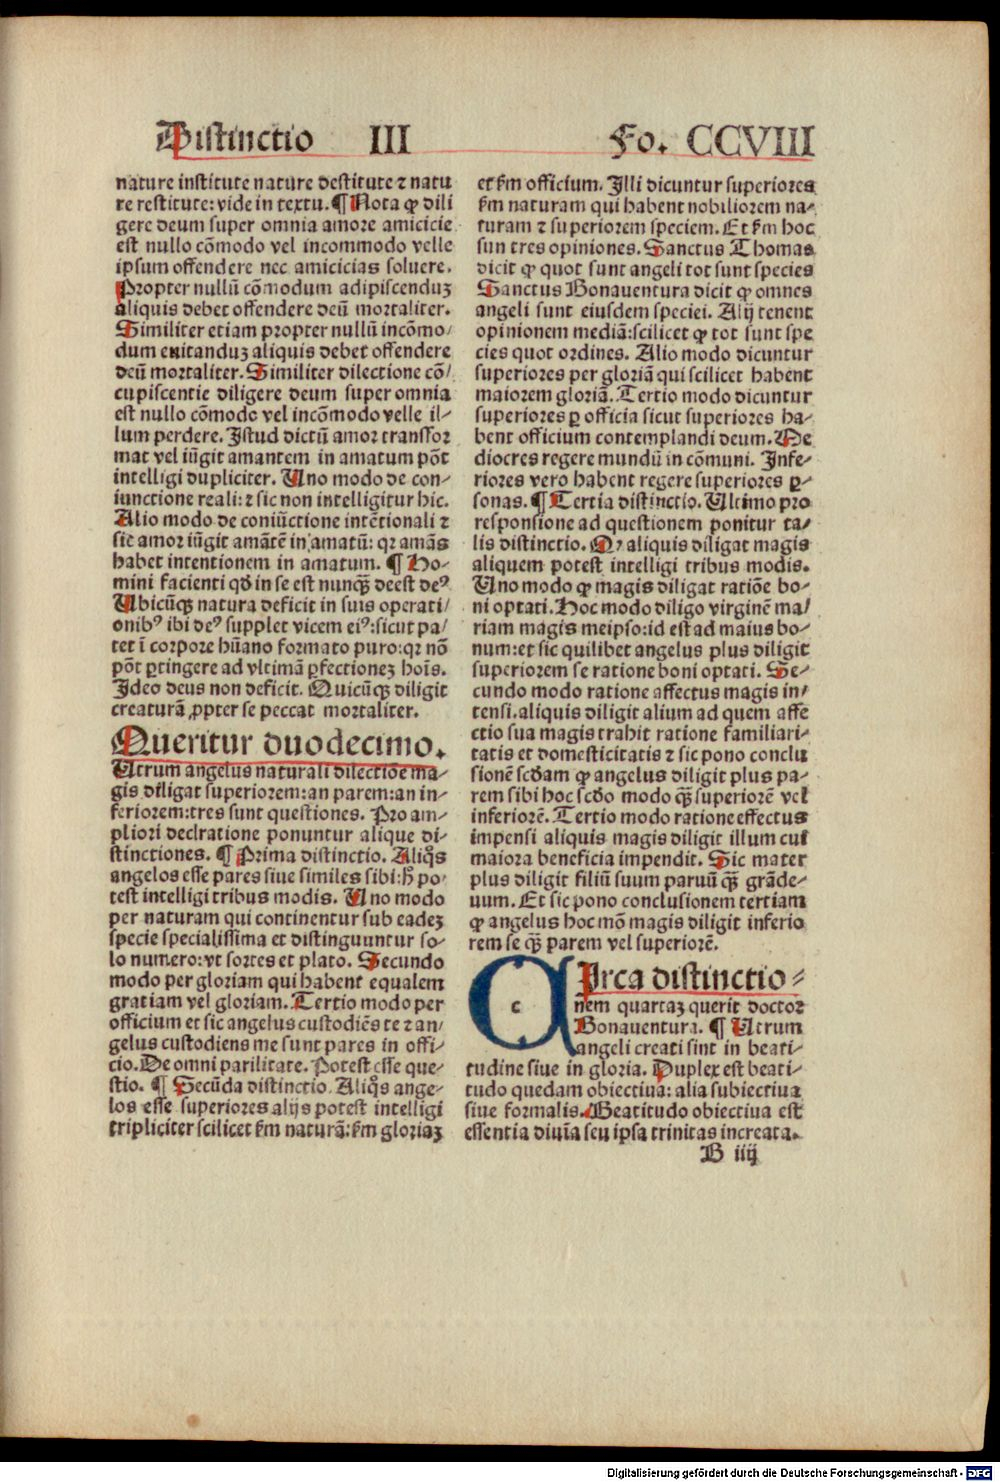 Distinctio III Fo. CCVIII
nature institute nature destitute ⁊ natu
re restitute: vide in textu. ¶ Nota ꝙ dili
gere deum super omnia amore amicicie
est nullo cōmodo vel incommodo velle
ipsum offendere nec amicicias soluere.
Propter nullū cōmodum adipiscenduꝫ
aliquis debet offendere deū mortaliter.
Similiter etiam propter nullū incōmo/
dum euitanduꝫ aliquis debet offendere
deū mortaliter. Similiter dilectione cō/
cupiscentie diligere deum super omnia
est nullo cōmodo vel incōmodo velle il-
lum perdere. Istud dictū amor transfor
mat vel iūgit amantem in amatum pōt
intelligi dupliciter. Uno modo de con-
iunctione reali: ⁊ sic non intelligitur hic.
Alio modo de coniūctione intētionali ⁊
sic amor iūgit amātē in amatū: qꝛ amās
habet intentionem in amatum. ¶ Ho-
mini facienti qđ in se est nunqƺ̄ deest deꝰ
Ubicūqꝫ natura deficit in suis operati/
onibꝰ ibi deꝰ supplet vicem eiꝰ: sicut pa/
tet ī corpore hūano formato puro: qꝛ nō
pōt ꝑtingere ad vltimā ꝑfectioneꝫ hoīs.
Ideo deus non deficit. Quicūqꝫ diligit
creaturā ꝓpter se peccat mortaliter.
Queritur duodecimo.
Utrum angelus naturali dilectiōe ma-
gis diligat superiorem: an parem: an in-
feriorem: tres sunt questiones. Pro am-
pliori declratione ponuntur alique di-
stinctiones. ¶ Prima distinctio. Aliqͦs
angelos esse pares siue similes sibi: hͦ po-
test intelligi tribus modis. Uno modo
per naturam qui continentur sub eadeꝫ
specie specialissima et distinguuntur so-
lo numero: vt sortes et plato. Secundo
modo per gloriam qui habent equalem
gratiam vel gloriam. Tertio modo per
officium et sic angelus custodiēs te ⁊ an/
gelus custodiens me sunt pares in offi-
cio. De omni parilitate. Potest esse que-
stio. ¶ Secūda distinctio. Aliqͦs ange-
los esse superiores alijs potest intelligi
tripliciter scilicet ẜm naturā: ẜm gloriaꝫ
et ẜm officium. Illi dicuntur superiores
ẜm naturam qui habent nobiliorem na-
turam ⁊ superiorem speciem. Et ẜm hoc
sun tres opiniones. Sanctus Thomas
dicit ꝙ quot sunt angeli tot sunt species
Sanctus Bonaventura dicit ꝙ omnes
angeli sunt eiusdem speciei. Alij tenent
opinionem mediā: scilicet ꝙ tot sunt spe
cies quot ordines. Alio modo dicuntur
superiores per gloriā qui scilicet habent
maiorem gloriā. Tertio modo dicuntur
superiores ꝑ officia sicut superiores ha-
bent officium contemplandi deum. Me
diocres regere mundū in cōmuni. Infe-
riores vero habent regere superiores ꝑ-
sonas. ¶ Tertia distinctio. Ultimo pro
responsione ad questionem ponitur ta/
lis distinctio. Qꝙ aliquis diligat magis
aliquem potest intelligi tribus modis.
Uno modo ꝙ magis diligat ratiōe bo-
ni optati. Hoc modo diligo virginē ma/
riam magis meipso: id est ad maius bo-
num: et sic quilibet angelus plus diligit
superiorem se ratione boni optati. Se-
cundo modo ratione affectus magis in/
tensi. aliquis diligit alium ad quem affe
ctio sua magis trahit ratione familiari-
tatis et domesticitatis ⁊ sic pono conclu
sionē scđam ꝙ angelus diligit plus pa-
rem sibi hoc scđo modo qƺ̄ superiorē vel
inferiorē. Tertio modo ratione effectus
impensi aliquis magis diligit illum cui
maiora beneficia impendit. Sic mater
plus diligit filiū suum paruū qƺ̄ grāde-
uum. Et sic pono conclusionem tertiam
ꝙ angelus hoc mōo magis diligit inferio
rem se qƺ̄ parem vel superiorē.
C Irca distinctio-
nem quartaꝫ querit doctor
Bonaventura. ¶ Utrum
angeli creati sint in beati-
tudine siue in gloria. Duplex est beati-
tudo quedam obiectiua: alia subiectiua
siue formalis. Beatitudo obiectiua est
essentia diuīa seu ipsa trinitas increata.
B iiij
Digitalisierung gefördert durch die Deutsche Forschungsgemeinschaft - DFG